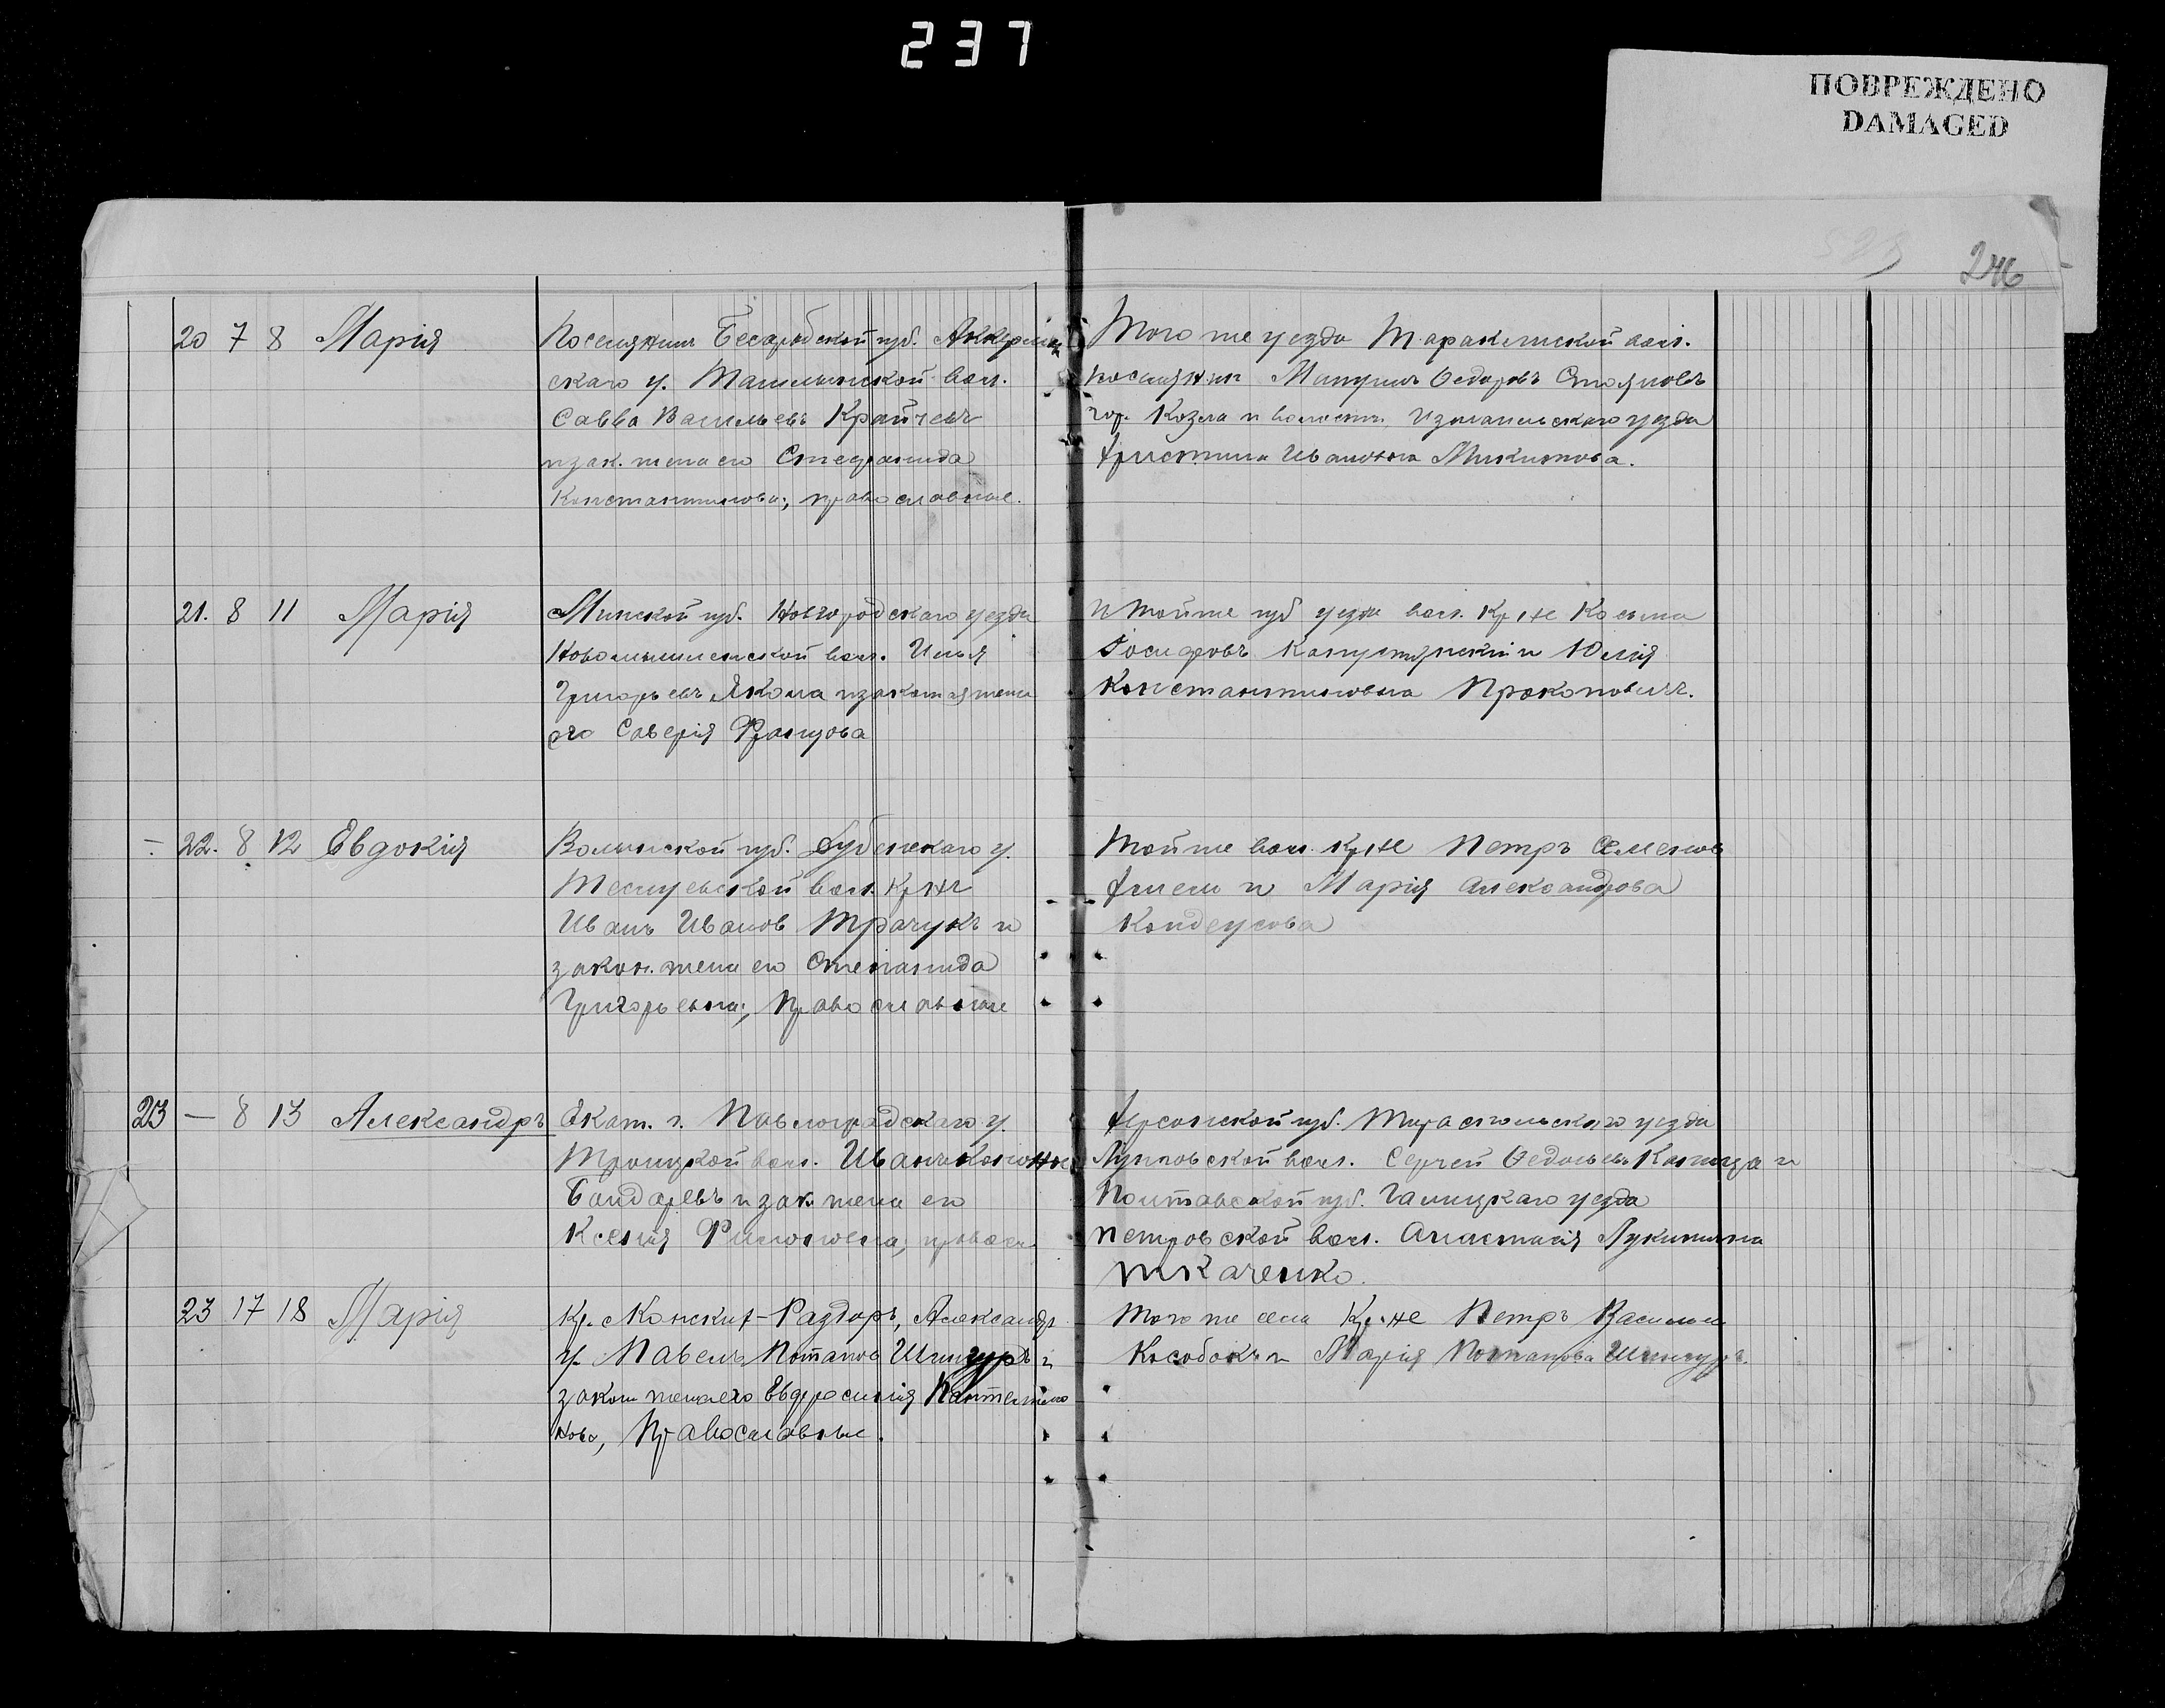 237
ПОВРЕЖДЕНО
DAMAGED
246
20 7 8 Марія
Поселянин Бесарабской губ. Аккерман
скаго у. Ташлыкской вол.
Савва Васильевъ Крайчевъ
и зак. жена его Стефанида
Константинова; православные.
Того же уезда Тараклиской вол.
поселянин Федоровъ Стояновъ
Измаильскаго уезда
Христина Ивановна Микитова.
21. 8 11 Марія
Минской губ. Новгородскаго уезда
вол. Илья
Григорьевъ Якола и законная жена
его Саверія
и тойже губ уезда вол. Кр-не Косьма
Іосифовъ и Юлія
Константиновна Прокоповичъ.
22. 8 12 Евдокія
Волынской губ. Дубенскаго у.
вол. кр-нъ
Иванъ Иванов Трачукъ и
закон. жена его Степанида
Григорьевна; Православные
Тойже вол. кр-не Петръ Семенов
и Марія Александрова
23 — 8 13 Александръ
Екат. г. Павлоградскаго у.
Троицкой вол. Иванъ
Бондаревъ и зак жена его
Ксенія
Херсонской губ. Тираспольскаго уезда
вол. Сергей
Полтавской губ. уезда
Петровской вол. Анастасія Лукинична
Ткаченко.
23 17 18 Марія
Кр. с. Конских-Раздоръ, Александр
у. Павелъ Потапов и
закон жена его Евфросинія
нова, Православные.
Того же села Кр-не Петръ Васильев
Кособокъ и Марія Потапова